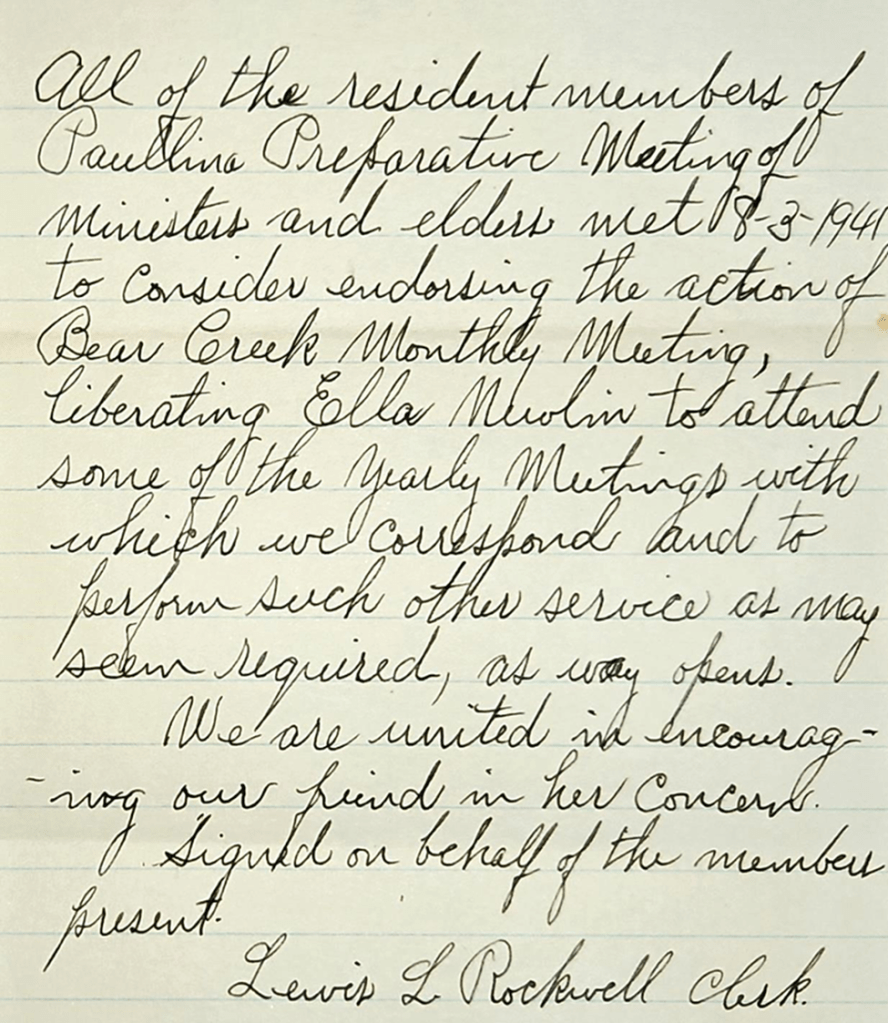 All of the resident members of
Paullina Preparative Meeting of
ministers and elders met 8-3-1941
to consider endorsing the action of
Bear Creek Monthly Meeting,
liberating Ella Newlin to attend
some of the Yearly Meetings with
which we correspond and to
perform such other service as may
seem required, as way opens.
We are united in encourag-
-ing our friend in her concern.
Signed on behalf of the members
present.
Lewis L Rockwell Clerk.